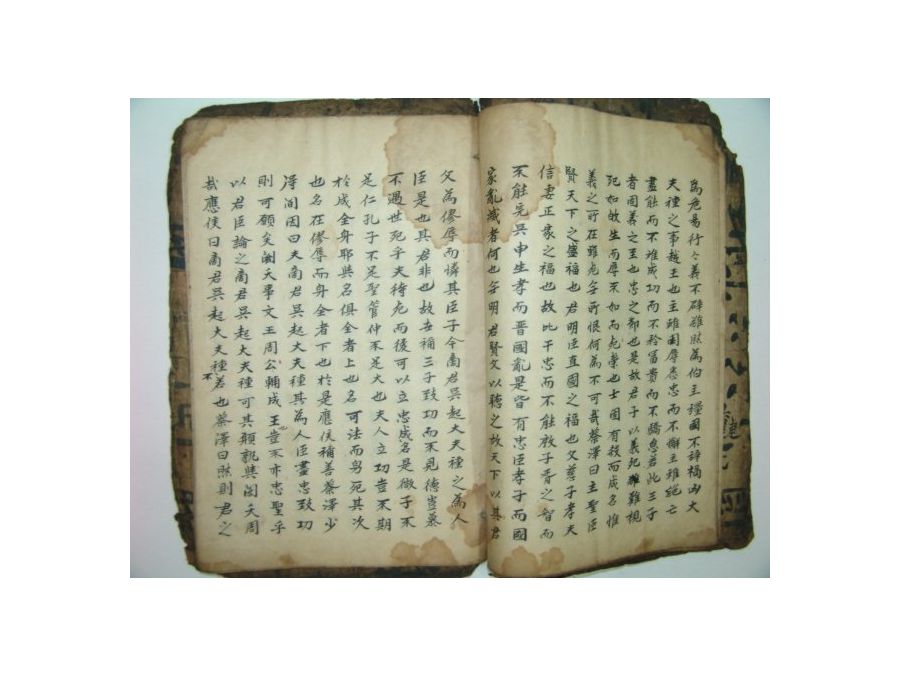 為危易行々義不辟難然為伯主強國不辞禍凶大
夫種之事越王也主雖困辱悉忠而不懈主雖絕亡
盡能而不離成功而不矜富貴而不驕怠若此三子
者固義之至也忠之節也是故君子以義死難視
死如故生而辱不如死榮也士固有殺而成名惟
義之所在雖死無所恨何為不可哉蔡澤曰主聖臣
賢天下之盛福也君明臣直國之福也父慈子孝夫
信妻正家之福也故比干忠而不能殷子胥之智而
不能完吳申生孝而晋國亂是皆有忠臣孝子而國
家亂滅者何也無明君賢父以聽之故天下以其君
父為僇辱而憐其臣子今商君吳起大夫種之為人
臣是也其君非也故世稱三子致功而不見德豈慕
不遇世死乎夫待死而後可以立忠成名是微子不
是仁孔子不足聖管仲不足大也夫人立功豈不期
於成全身耶與名俱全者上也名可法而身死其次
也名在僇辱而身全者下也於是應侯稱善蔡澤少
得間因曰夫商君吳起大夫種其為人臣盡忠致功
則可願矣閎夭事文王周公輔成王豈不亦忠聖乎
以君臣論之商君吳起大夫種可其願孰與閎夭周
哉應侯曰商君吳起大夫種不若也蔡澤曰然則君之